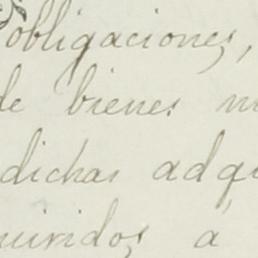 obligaciones,
de bienes m
dichas adqu
uiridos á